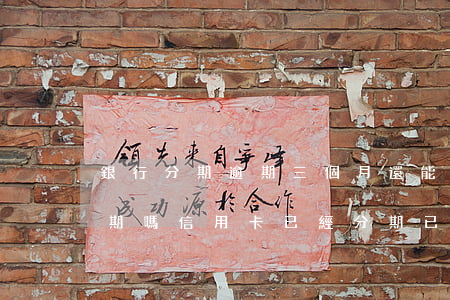 領先来自争峰
銀行分期逾期三個月還能
成功源於合作
期嗎信用卡已經分期已